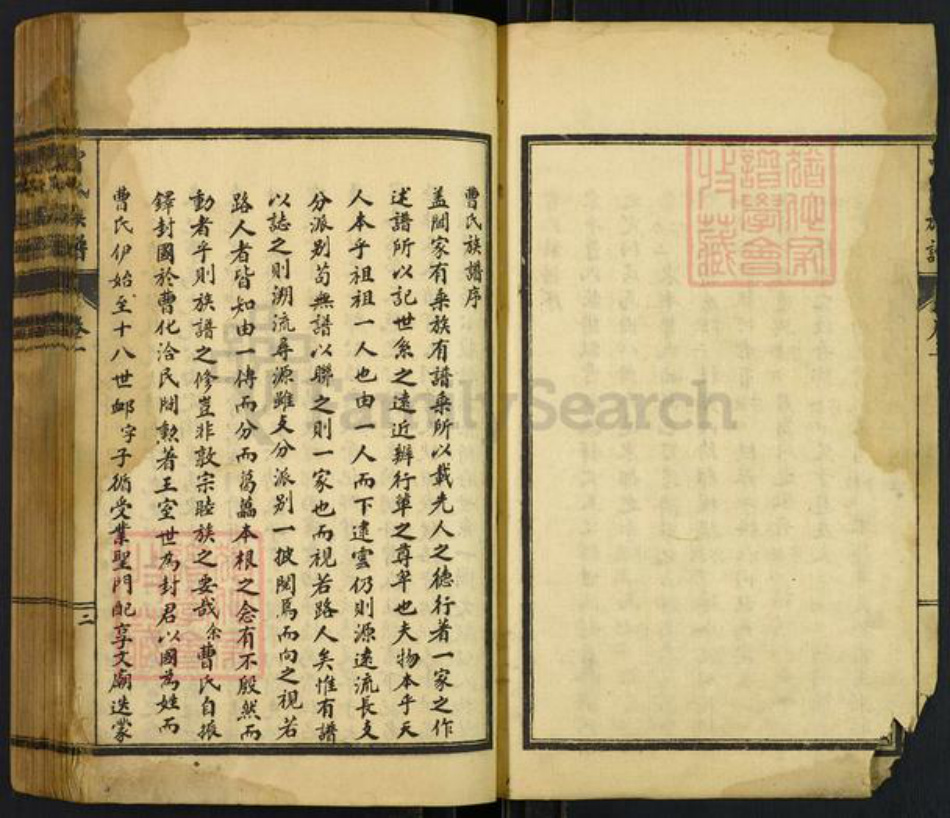 曹氏族譜序
盖聞家有乘族有譜乘所以載先人之德行著一家之作
述譜所以記世系之遠近辨行軰之尊卑也夫物本乎天
人本乎祖祖一人也由一人而下逮雲仍則源遠流長支
分派别苟無譜以聯之則一家也而視若路人矣惟有譜
以誌之則溯流尋源雖支分派别一披閱焉而向之視若
路人者皆知由一傳而分而葛藟本根之念有不殷然而
動者乎則族譜之修豈非敦宗睦族之要哉余曹氏自振
鐸封國於曹化洽民間勲著王室世為封君以國為姓而
曹氏伊始至十八世䘏字子循受業聖門配享文廟迭蒙
族譜
卷一
三
譜學會
收藏
FamilySearch